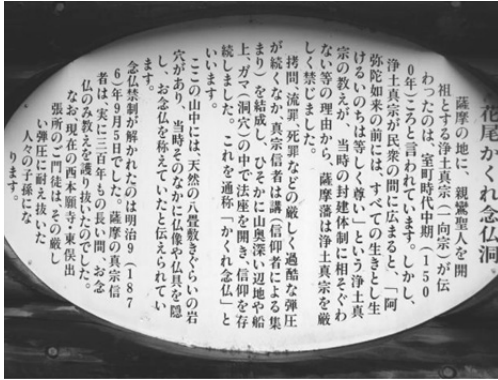 花尾かくれ念仏洞
薩摩の地に、親鸞聖人を開
祖とする浄土真宗(一向宗)が伝
わったのは、室町時代中期(150
0年)ころと言われています。しかし、
浄土真宗が民衆の間に広まると、「阿
弥陀如来の前には、すべての生きとし生
けるいのちは等しく尊い」という浄土真
宗の教えが、当時の封建体制に相そぐわ
ない等の理由から、薩摩藩は浄土真宗を厳
しく禁じました。
拷問、流罪、死罪などの厳しく過酷な弾圧
が続くなか、真宗信者は講(信仰者による集
まり)を結成し、ひそかに山奥深い辺地や船
上、ガマ(洞穴)の中で法座を開き、信仰を存
続しました。これを通称「かくれ念仏」と
いいます。
ここの山中には、天然の八畳敷きぐらいの岩
穴があり、当時そのなかに仏像や仏具を隠
し、お念仏を称えていたと伝えられてい
ます。
念仏禁制が解かれたのは明治9(187
6)年9月5日でした。薩摩の真宗信
者は、実に三百年もの長い間、お念
仏のみ教えを護り抜いたのでした。
なお、現在の西本願寺・東俣出
張所のご門徒は、その厳し
い弾圧に耐え抜いた
人々の子孫にな
ります。